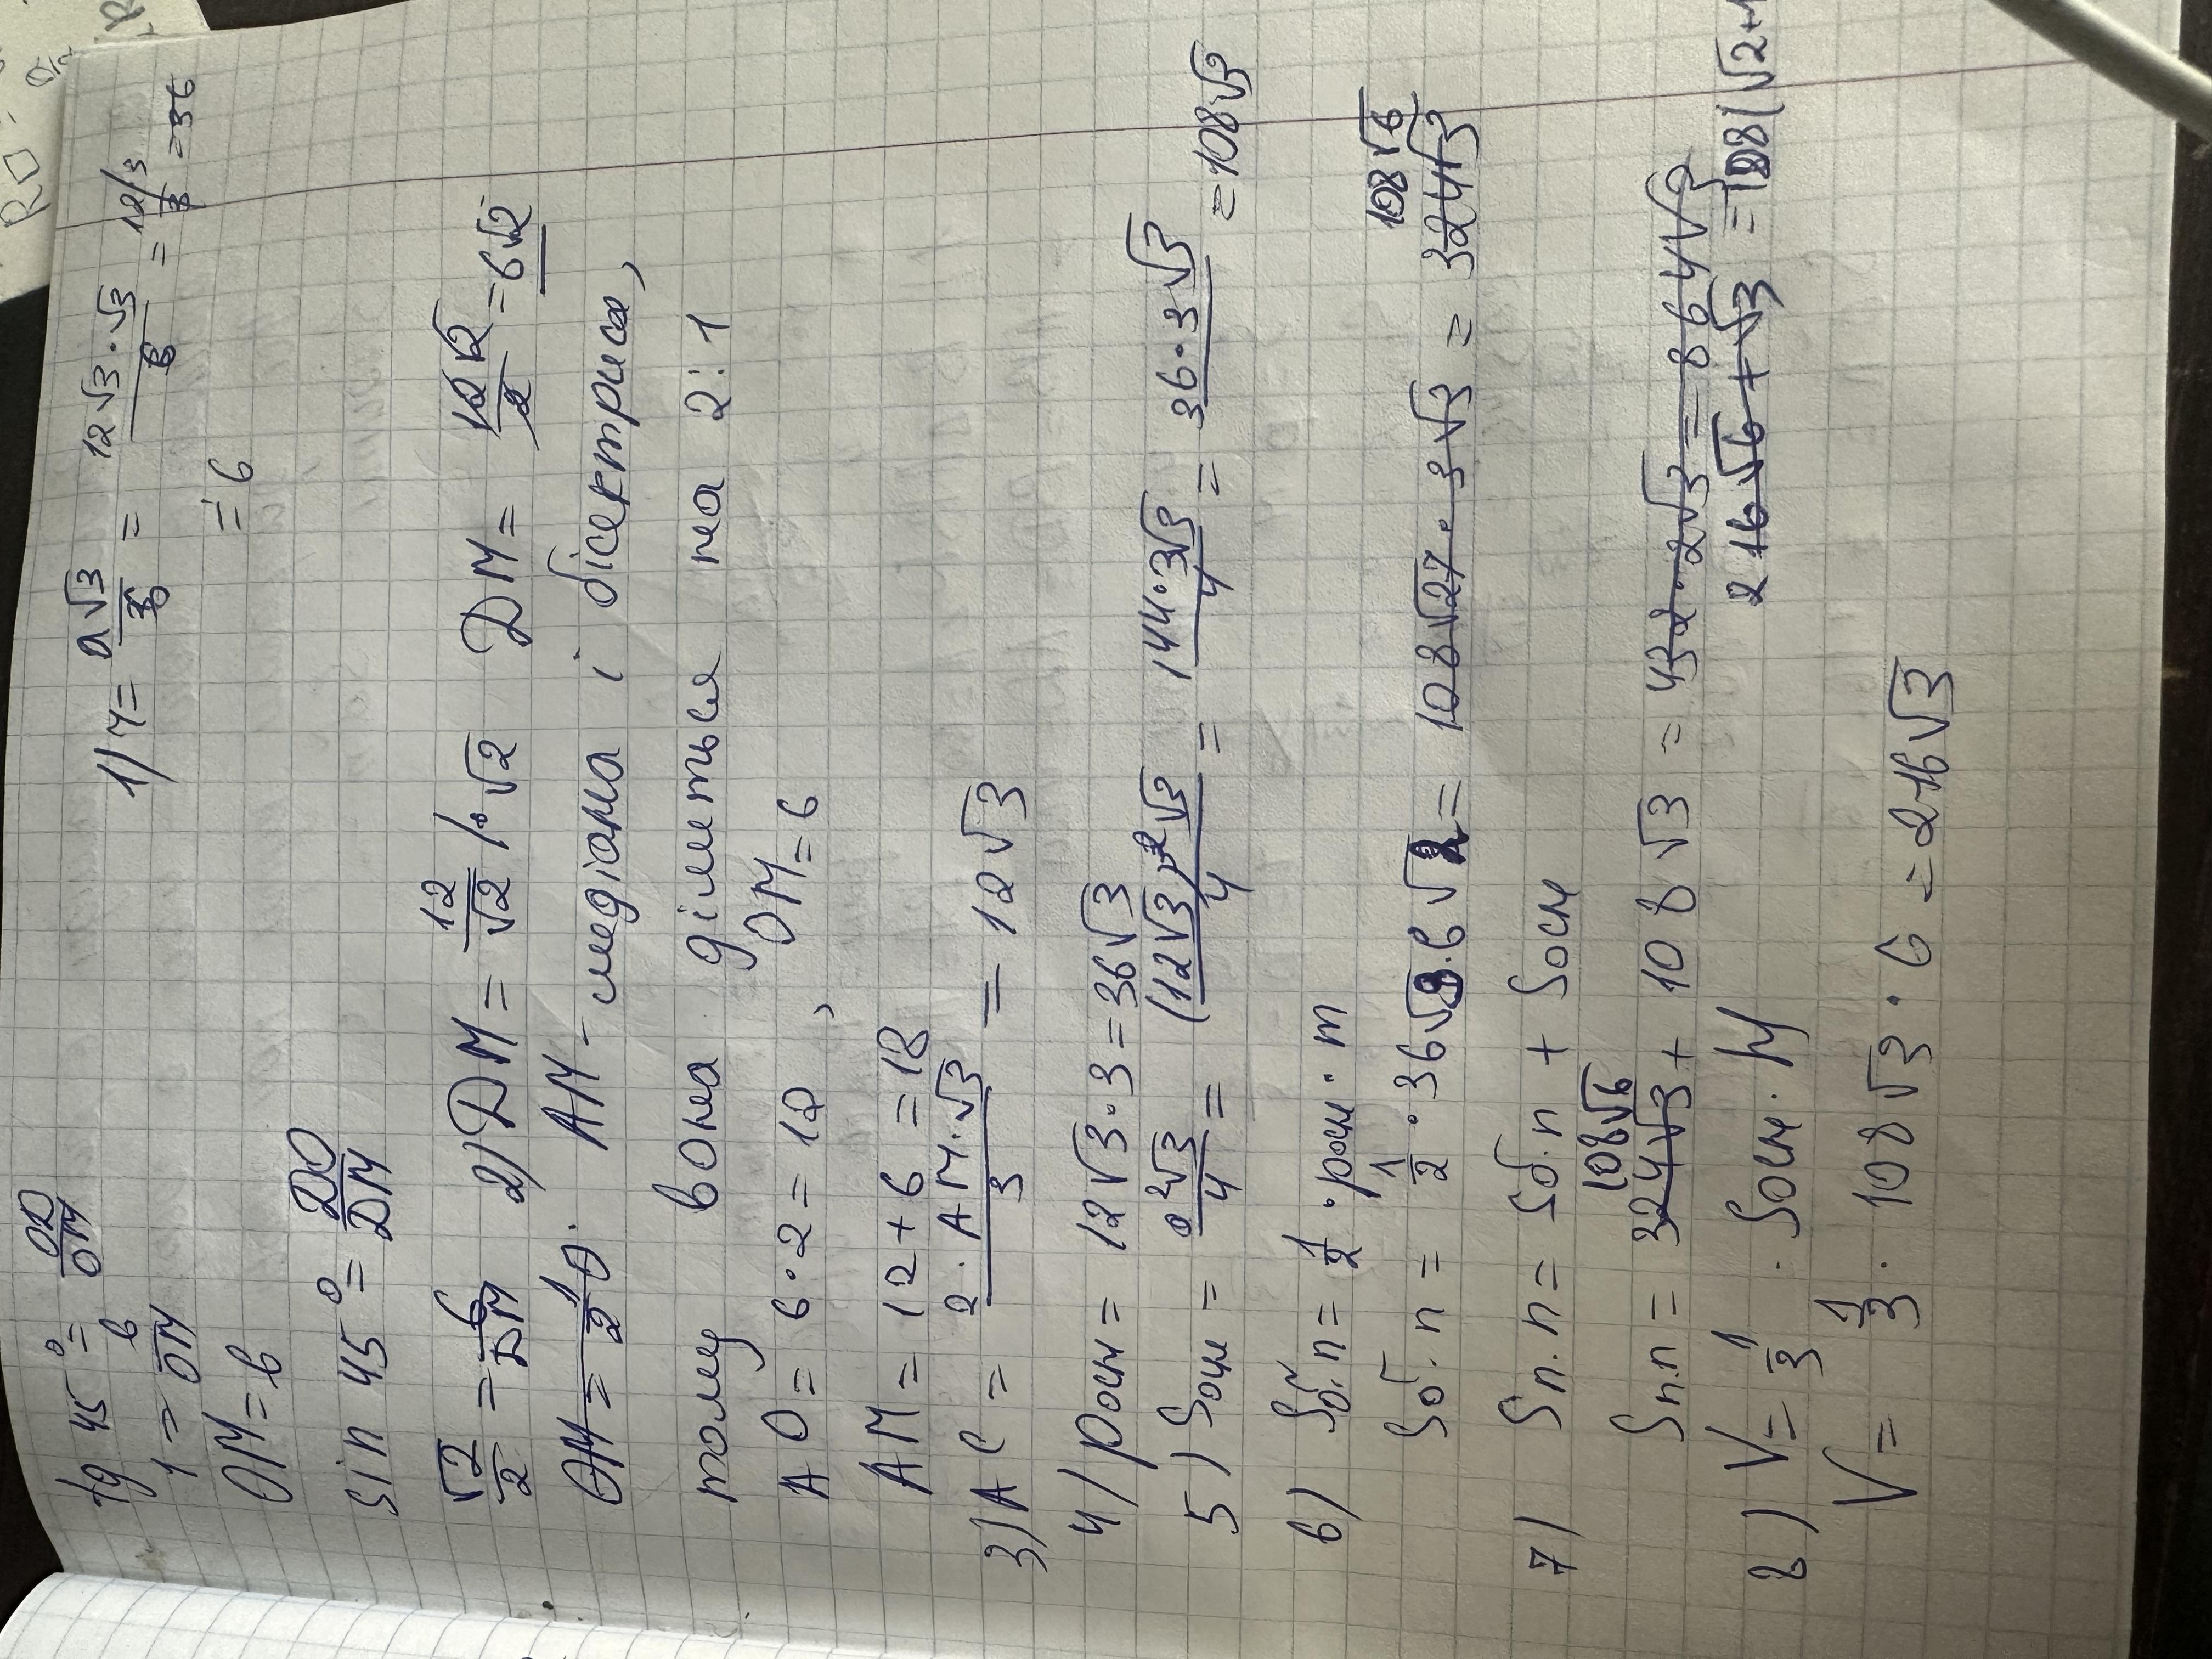 tg 45° = OD/OM
1 = 6/OM
OM = 6
1) r = a√3/6 = 12√3·√3/6 = 12/3/ = 36
= 6
sin 45° = DO/DM
√2/2 = 6/DM 2) DM = 12/√2 /·√2 DM = 12√2/2 = 6√2
OM = 1/2 O. AM - медіана і бісектриса,
тому вона ділиться на 2:1
AO = 6·2 = 12, OM = 6
AM = 12 + 6 = 18
3) AC = 2·AM·√3/3 = 12√3
4) Pосн = 12√3·3 = 36√3
5) Sосн = a²√3/4 = (12√3)²√3/4 = 144·3√3/4 = 36·3√3 = 108√3
6) Sб.п = 1/2 · pосн · m
Sб.п = 1/2 · 36√3·6√2 = 108√27·3√3 = 324√3 108√6
7) Sп.п = Sб.п + Sосн
108√6
Sп.п = 324√3 + 108√3 = 432·2√3 = 864√3
216√6+√3 = 108(√2+1
8) V = 1/3 · Sосн · H
V = 1/3 · 108√3 · 6 = 216√3